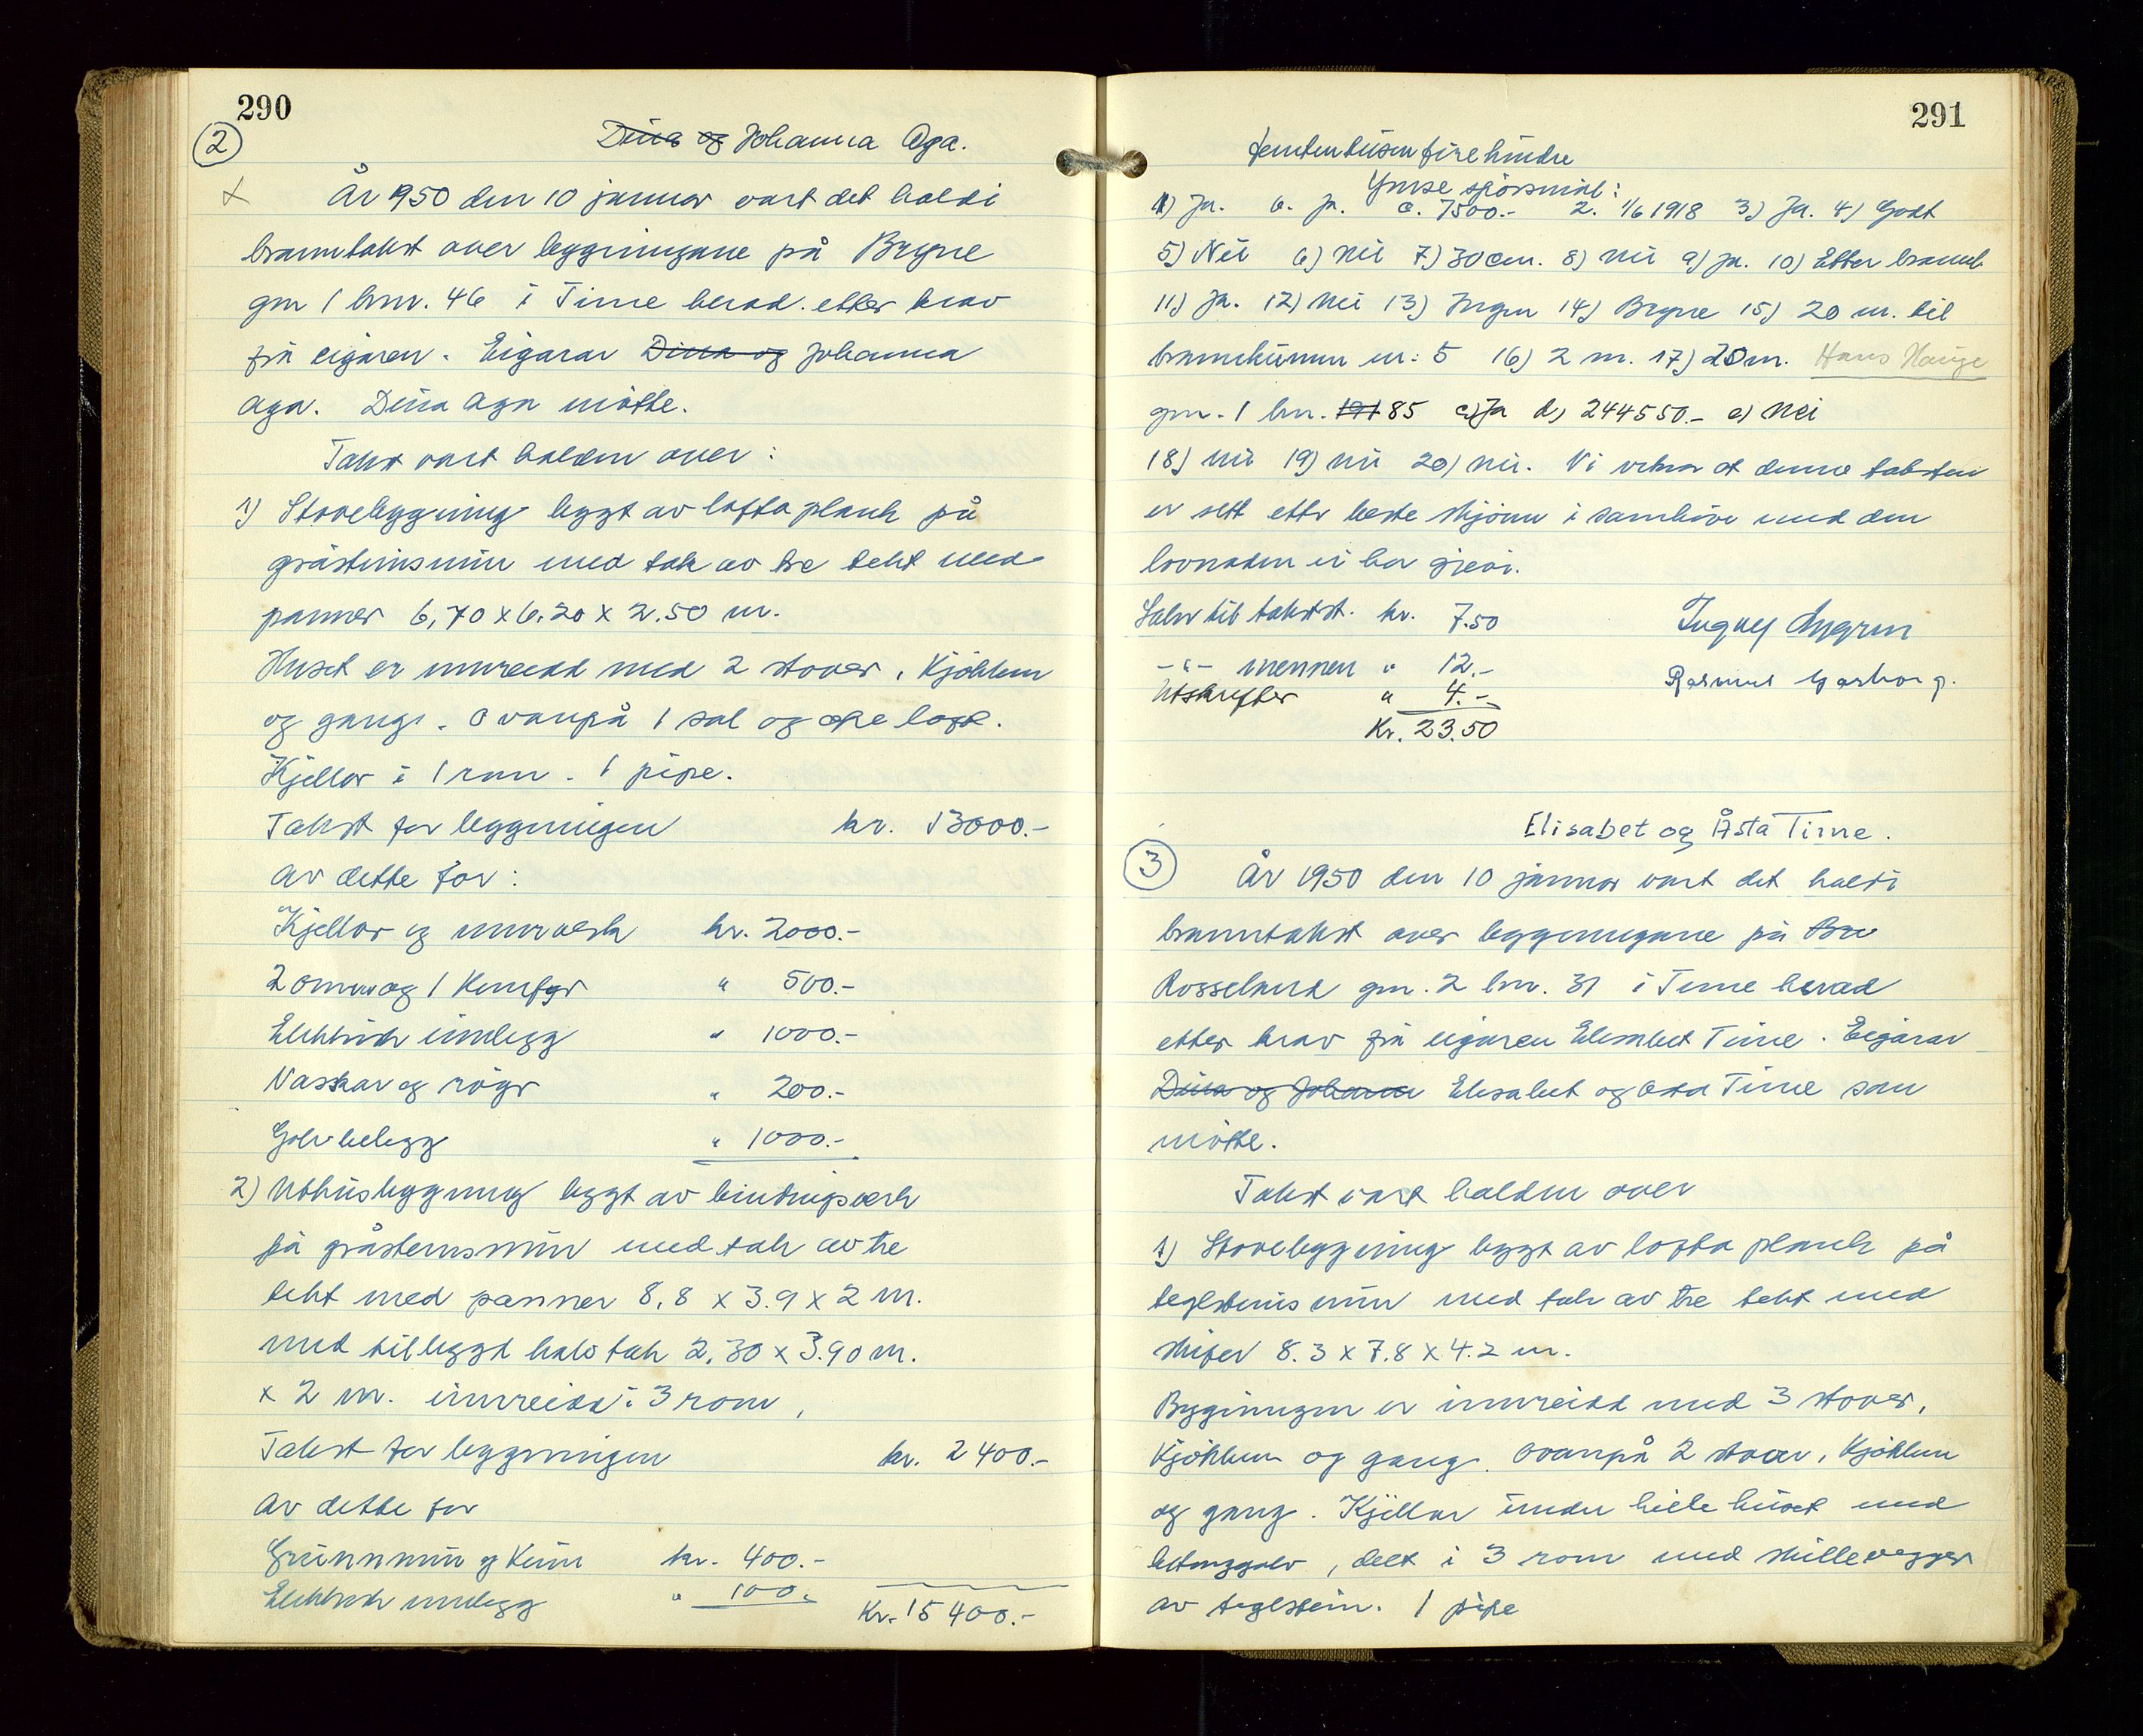 290
2
Dina og Johanna Aga.
År 1950 den 10 januar vart det haldi
branntakst over byggningane på Bryne
gnr 1 bnr. 46 i Time herad. etter krav
frå eigaren. Eigarar Dina og Johanna
Aga. Dina Aga møtte.
Takst vart halden over:
1) Stovebygging bygt av lofta plank på
gråsteinsmur med tak av tre tekt med
panner 6,70 x 6.20 x 2.50 m.
Huset er innreidd med 2 stover, kjøkken
og gang. Ovanpå 1 sal og ope loft.
Kjellar i 1 rom. 1 pipe.
Takst for byggningen kr. 13000.-
av dette for:
Kjellar og murverk kr. 2000.-
2 omnar og 1 komfyr " 500.-
Elektrisk innlegg " 1000.-
Vaskar og røyr " 200.-
Golvbelegg " 1000.-
2) Uthusbygning bygt av bindingsverk
på gråsteinsmur med tak av tre
tekt med panner 8,8 x 3.9 x 2 m.
med tilbygd halvtak 2,30 x 3.90 m.
x 2 m. innreidd i 3 rom,
Takst for byggningen kr. 2400.-
av dette for
Grunnmur og kum kr. 400.-
Elektrisk innlegg " 100.-
Kr. 15400.-
291
femtentusenfirehundre
Ymse spørsmål:
1) Ja. b. Ja. c. 7500.- 2. 1/6 1918 3) Ja. 4) Godt
5) Nei 6) Nei 7) 30 cm. 8) Nei 9) Ja. 10) Etter brannl.
11) Ja. 12) Nei 13) Ingen 14) Bryne 15) 20 m. til
brannkumm nr: 5 16) 2 m. 17) 20 m. Hans Hauge
gnr. 1 bnr. 191 85 c) Ja d) 244550.- e) Nei
18) Nei 19) Nei 20) Nei. Vi vitnar at denne taksten
er sett etter beste skjønn i samhøve med den
lovnaden vi har gjevi.
Løn til takstst. kr. 7.50
-"- mennen " 12.-
Utskrifter " 4.-
Kr. 23.50
Rasmus Garborg.
Elisabet og Åsta Time.
3
År 1950 den 10 januar vart det haldi
branntakst over byggningane på Bry
Rosseland gnr. 2 bnr. 31 i Time herad
etter krav frå eigaren Elisabet Time. Eigarar
Dina og Johanna Elisabet og Åsta Time som
møtte.
Takst vart halden over
1) Stovebygging bygt av lofta plank på
teglsteinsmur med tak av tre tekt med
skifer 8.3 x 7.8 x 4.2 m.
Byggningen er innreidd med 3 stover,
kjøkken og gang. Ovanpå 2 stover, kjøkken
og gang. Kjellar under heile huset med
betonggolv, delt i 3 rom med skillevegger
av teglstein. 1 pipe